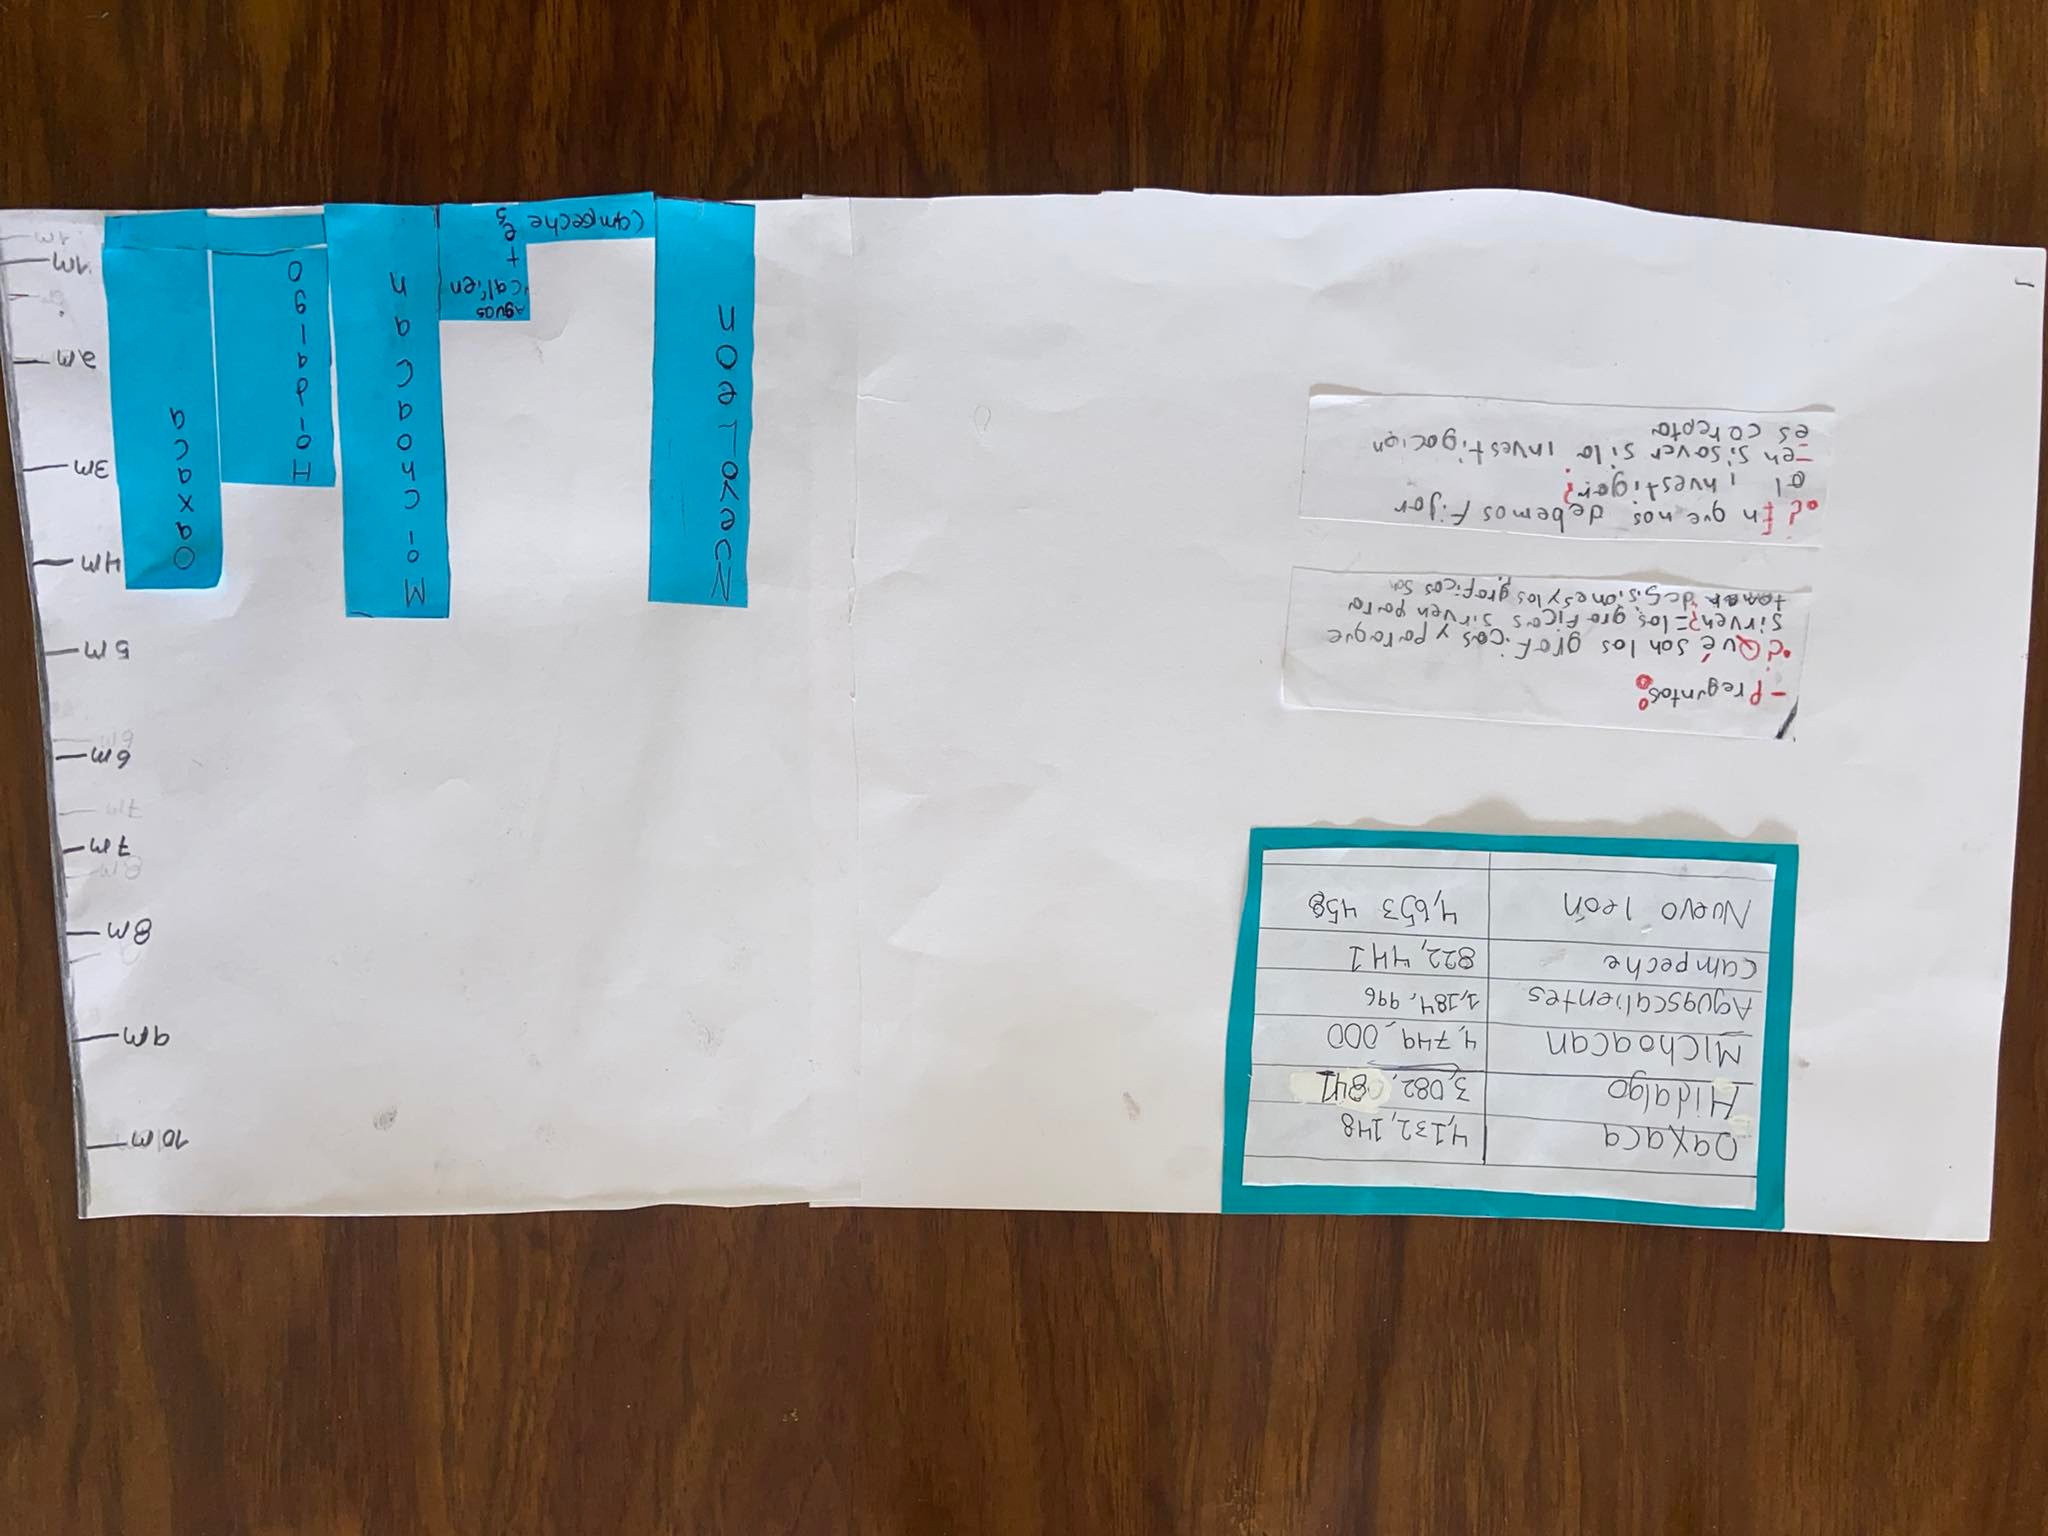 Oaxaca 4,132,148
Hidalgo 3,082,841
Michoacan 4,749,000
Aguascalientes 1,184,996
campeche 822,441
Nuevo león 4,653 458
- Preguntas:
•¿Qué son las graficas y para que
sirven?= las graficas sirven para
tomar desisiones y los graficos son
•¿En que nos debemos fijar
al investigar?
-en sisaver si la investigacion
es corepta
10m
9m
8m
7m
6m
5m
4m
3m
2m
1m
Nuevo Leon
campeche
Aguas
calien
tes
Moichoacan
Hoidalgo
Oaxaca